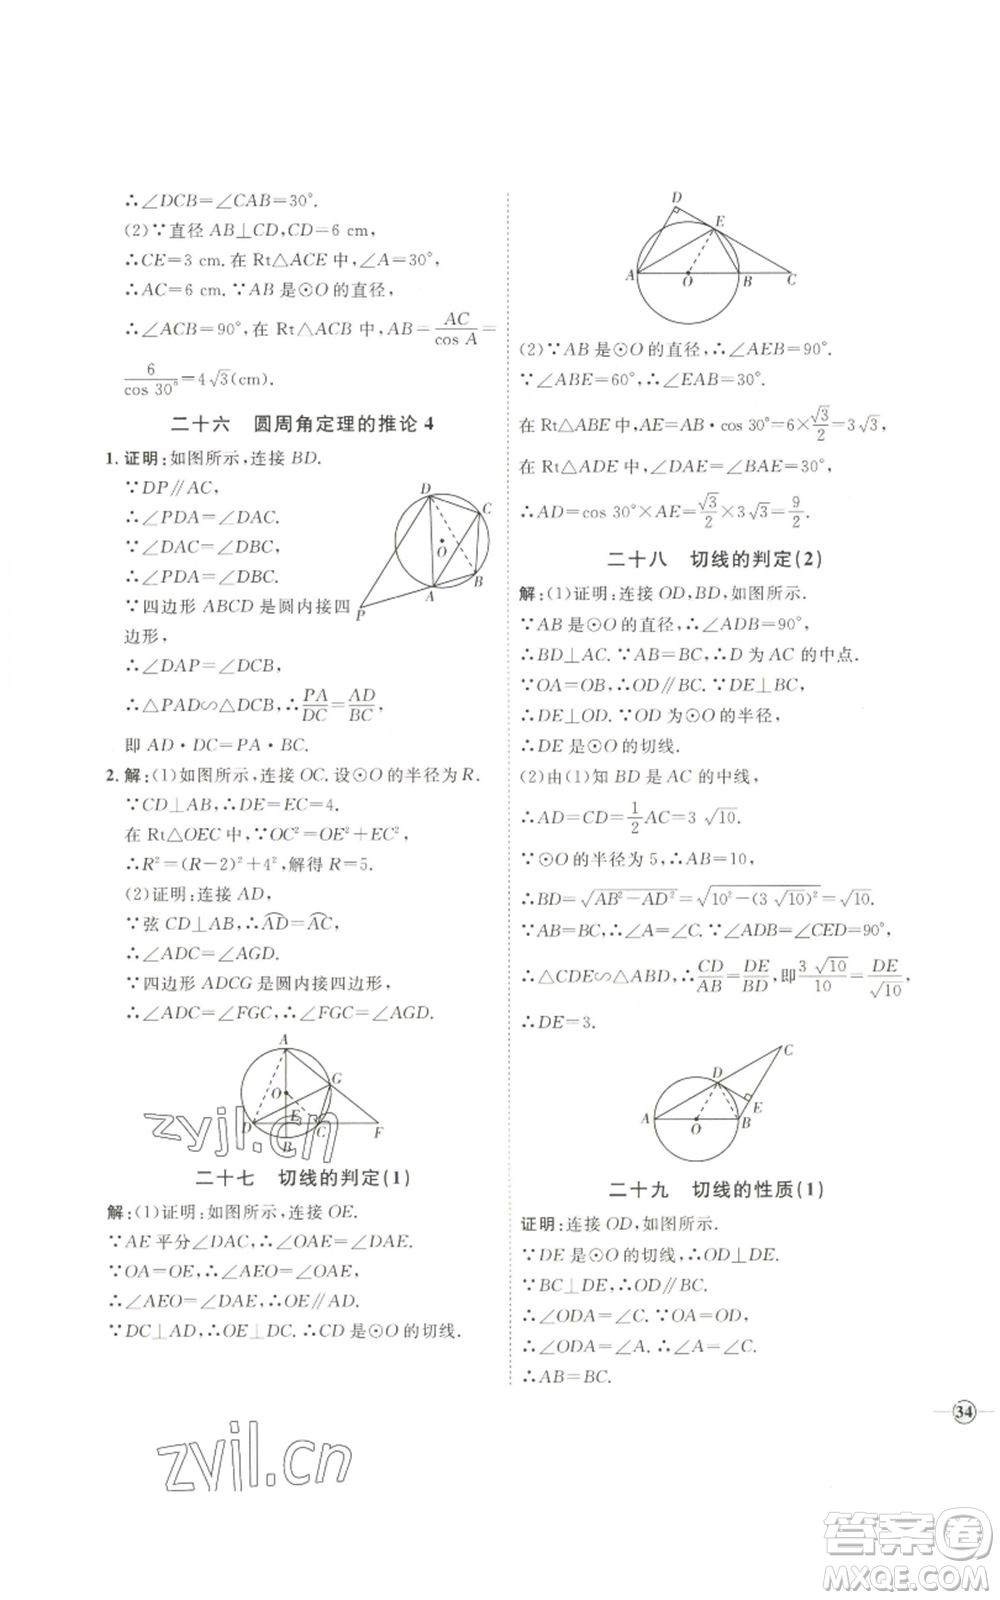 ∴∠DCB=∠CAB=30°.
(2)∵直径 AB⊥CD,CD=6 cm,
∴CE=3 cm. 在 Rt△ACE 中,∠A=30°,
∴AC=6 cm. ∵AB 是⊙O 的直径,
∴∠ACB=90°,在 Rt△ACB 中,AB=AC/cos A=
6/cos 30°=4√3(cm).
二十六 圆周角定理的推论 4
1. 证明:如图所示,连接 BD.
∵DP∥AC,
∴∠PDA=∠DAC.
∵∠DAC=∠DBC,
∴∠PDA=∠DBC.
∵四边形 ABCD 是圆内接四
边形,
∴∠DAP=∠DCB,
∴△PAD∽△DCB,∴PA/DC=AD/BC,
即 AD·DC=PA·BC.
D
C
O
B
A
P
2. 解:(1)如图所示,连接 OC. 设⊙O 的半径为 R.
∵CD⊥AB,∴DE=EC=4.
在 Rt△OEC 中,∵OC²=OE²+EC²,
∴R²=(R-2)²+4²,解得 R=5.
(2)证明:连接 AD,
∵弦 CD⊥AB,∴AD⌒=AC⌒,
∴∠ADC=∠AGD.
∵四边形 ADCG 是圆内接四边形,
∴∠ADC=∠FGC,∴∠FGC=∠AGD.
A
G
O
D
E
C
F
B
二十七 切线的判定(1)
解:(1)证明:如图所示,连接 OE.
∵AE 平分∠DAC,∴∠OAE=∠DAE.
∵OA=OE,∴∠AEO=∠OAE,
∴∠AEO=∠DAE,∴OE∥AD.
∵DC⊥AD,∴OE⊥DC. ∴CD 是⊙O 的切线.
D
E
A
O
B
C
(2)∵AB 是⊙O 的直径,∴∠AEB=90°.
∵∠ABE=60°,∴∠EAB=30°.
在 Rt△ABE 中,AE=AB·cos 30°=6×√3/2=3√3.
在 Rt△ADE 中,∠DAE=∠BAE=30°,
∴AD=cos 30°×AE=√3/2×3√3=9/2.
二十八 切线的判定(2)
解:(1)证明:连接 OD,BD,如图所示.
∵AB 是⊙O 的直径,∴∠ADB=90°,
∴BD⊥AC. ∵AB=BC,∴D 为 AC 的中点.
∵OA=OB,∴OD∥BC. ∵DE⊥BC,
∴DE⊥OD. ∵OD 为⊙O 的半径,
∴DE 是⊙O 的切线.
(2)由(1)知 BD 是 AC 的中线,
∴AD=CD=1/2AC=3√10.
∵⊙O 的半径为 5,∴AB=10,
∴BD=√(AB²-AD²)=√(10²-(3√10)²)=√10.
∵AB=BC,∴∠A=∠C. ∵∠ADB=∠CED=90°,
∴△CDE∽△ABD,∴CD/AB=DE/BD,即3√10/10=DE/√10,
∴DE=3.
C
D
E
A
O
B
二十九 切线的性质(1)
证明:连接 OD,如图所示.
∵DE 是⊙O 的切线,∴OD⊥DE.
∵BC⊥DE,∴OD∥BC,
∴∠ODA=∠C. ∵OA=OD,
∴∠ODA=∠A. ∴∠A=∠C.
∴AB=BC.
34
zyjl.cn
zyjl.cn
答案卷
MXQE.COM